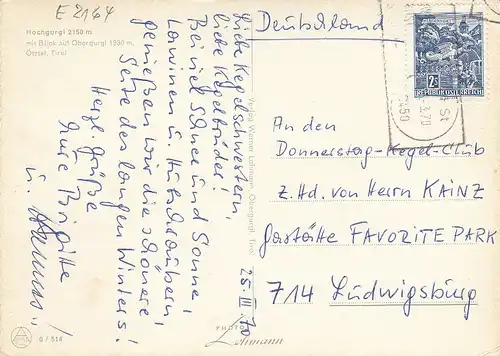 E 2164
Hochgurgl 2150 m
mit Blick auf Obergurgl 1930 m,
Ötztal, Tirol
Liebe Kegelschwestern,
liebe Kegelbrüder!
Bei viel Schnee und Sonne,
Lawinen u. Hubschraubern,
genießen wir die schönere
Seite des langen Winters!
Herzl. Grüße
Eure Brigitte
u.
25. III. 70
Verlag Werner Lohmann, Obergurgl, Tirol
PHOTO
Lohmann
6/514
Deutschland
2 S
REPUBLIK ÖSTERREICH
An den
Donnerstag-Kegel-Club
z. Hd. von Herrn KAINZ
Gaststätte FAVORITE PARK
714 Ludwigsburg